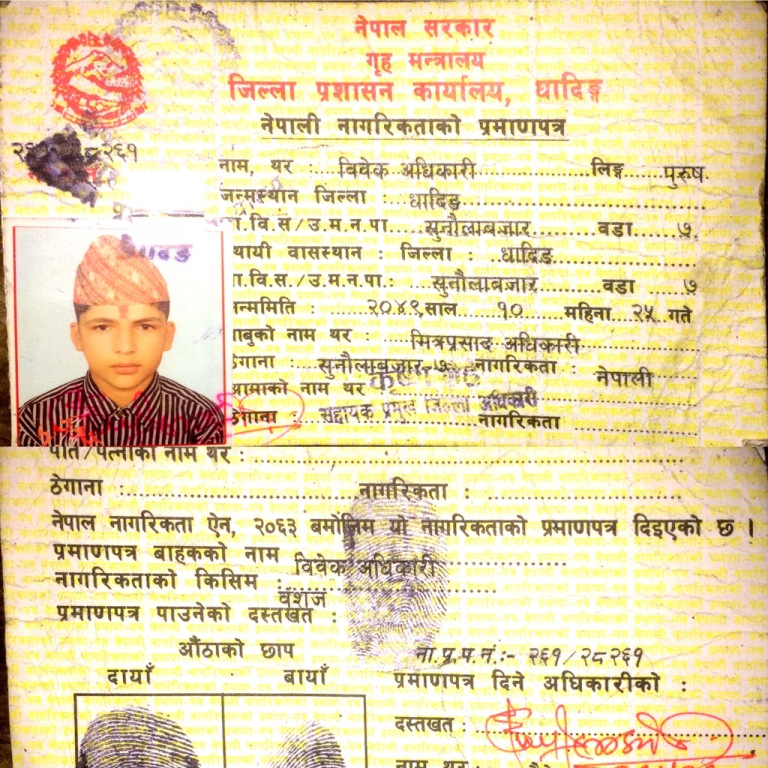 नेपाल सरकार
गृह मन्त्रालय
जिल्ला प्रशासन कार्यालय, धादिङ्ग
नेपाली नागरिकताको प्रमाणपत्र
२६१
नाम, थर : विवेक अधिकारी लिङ्ग पुरुष
जन्मस्थान जिल्ला : धादिङ
वि.स/उ.म.न.पा. सुनौलाबजार वडा ७
थायी वासस्थान : जिल्ला : धादिङ
ा.वि.स./उ.म.न.पा.: सुनौलाबजार वडा ७
न्ममिति : २०४९ साल १० महिना २५ गते
बाबुको नाम थर : मित्रप्रसाद अधिकारी
ठेगाना : सुनौलाबजार-७ नागरिकता : नेपाली
आमाको नाम थर
ठेगाना : सहायक प्रमुख जिल्ला अधिकारी नागरिकता
पति/पत्नीको नाम थर :
ठेगाना : नागरिकता :
नेपाल नागरिकता ऐन, २०६३ बमोजिम यो नागरिकताको प्रमाणपत्र दिइएको छ ।
प्रमाणपत्र बाहकको नाम विवेक अधिकारी
नागरिकताको किसिम : वंशज
प्रमाणपत्र पाउनेको दस्तखत :
औंठाको छाप ना.प्र.प.नं.:- २६१/२८२६१
दायाँ बायाँ प्रमाणपत्र दिने अधिकारीको :
दस्तखत :
नाम थर